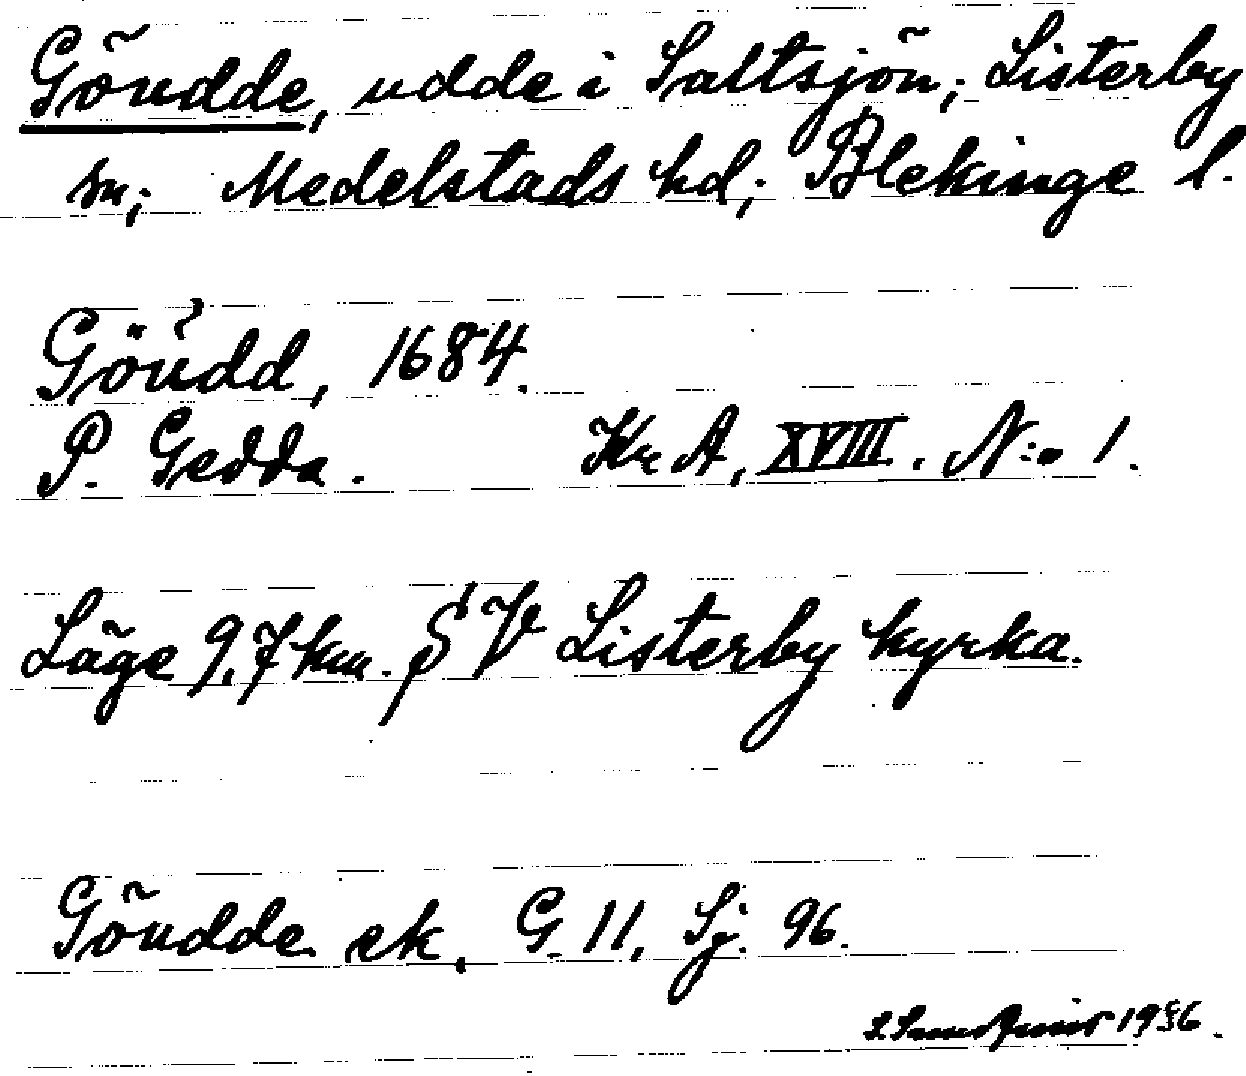 Göudde, udde i Saltsjön; Listerby
sn; Medelstads hd; Blekinge l.
Göüdd, 1684.
P. Gedda. Kr A, XVIII. N:o 1.
Läge 9,7 km. SV Listerby kyrka.
Göudde ek, G 11, Sj. 96.
1956.